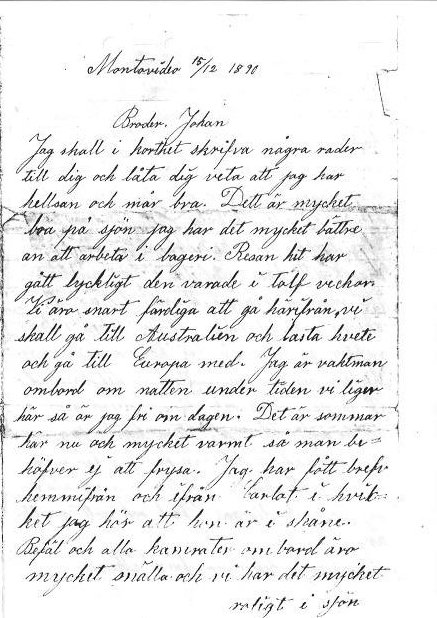 Montovideo 15/12 1890
Broder. Johan
Jag shall i korthet skrifva några rader
till dig och låta dig veta att jag har
hellsan och mår bra. Dett är mycket
bra på sjön jag har det mycket bättre
än att arbeta i bageri. Resan hit har
gått lyckligt den varade i tolf veckor
Vi äro snart färdiga att gå härifrån, vi
shall gå till Australien och lasta hvete
och gå till Europa med. Jag är vaktman
ombord om natten under tiden vi liger
här så är jag fri om dagen. Det är sommar
här nu och mycket varmt så man be=
höfver ej att frysa. Jag har fått bref
hemmifrån och ifrån i hvil=
ket jag hör att hon är i skåne.
Befäl och alla kamrater ombord äro
mycket snälla och vi har det mycket
roligt i sjön